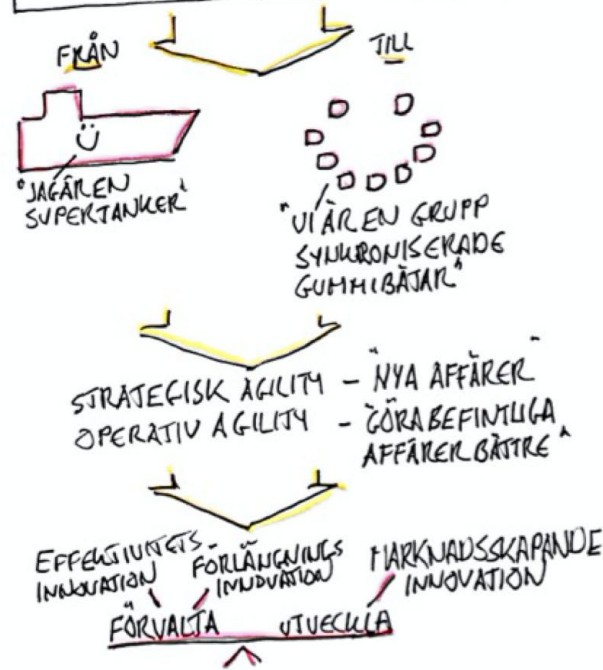 FRÅN
TILL
"JAG ÄR EN
SUPERTANKER"
"VI ÄR EN GRUPP
SYNKRONISERADE
GUMMIBÅTAR"
STRATEGISK AGILITY - "NYA AFFÄRER"
OPERATIV AGILITY - "GÖRA BEFINTLIGA
AFFÄRER BÄTTRE"
EFFEKTIVITETS-
INNOVATION
FÖRLÄNGNINGS
INNOVATION
MARKNADSSKAPANDE
INNOVATION
FÖRVALTA
UTVECKLA